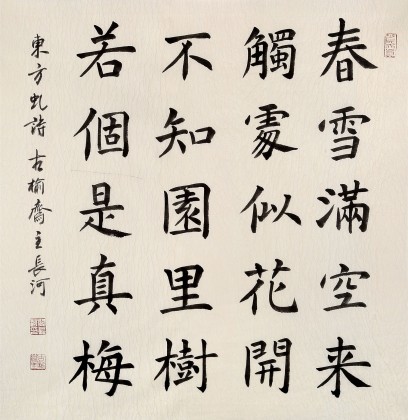 春雪滿空来
觸處似花開
不知園里樹
若個是真梅
東方虬詩 古榆齋主長河